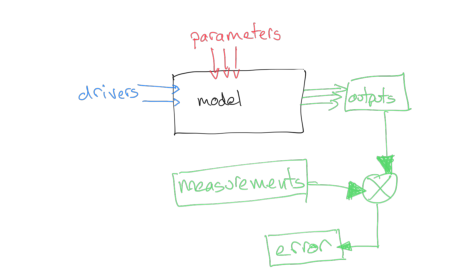 parameters
drivers
model
outputs
measurements
error